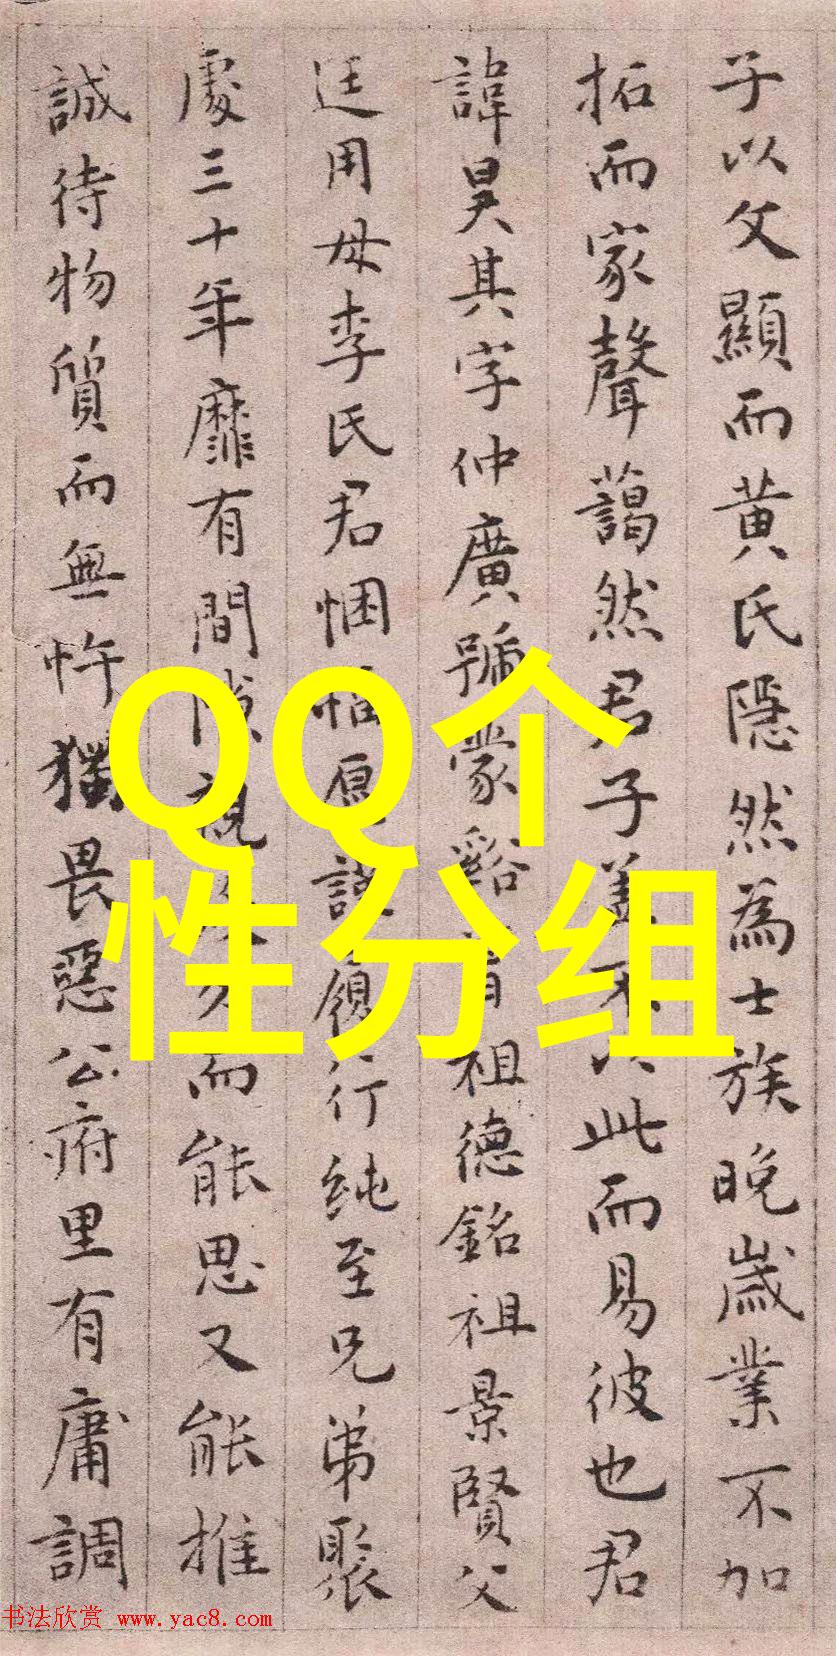 子以父顯而黄氏隠然為士族晚歲業不加
拓而家聲藹然君子蓋不以此而易彼也君
諱昊其字仲廣號蒙谿曾祖德銘祖景賢父
廷用母李氏君悃愊願謹履行纯至兄弟聚
處三十年靡有間隙視人而能思又能推
誠待物質而無忤獨畏惡公府里有庸調
QQ个
性分组
书法欣赏 www.yac8.com